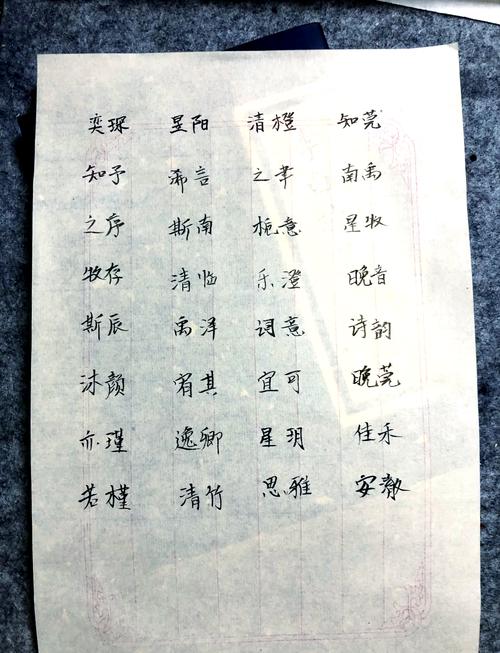 奕琛 昱阳 清橙 知莞
知予 希言 之聿 南禹
之序 斯南 栀意 星牧
牧存 清临 禾澄 晚音
斯辰 禹泽 词意 诗韵
沐颜 宥其 宜可 晚莞
亦瑾 逸卿 星玥 佳禾
若槿 清竹 思雅 安澈